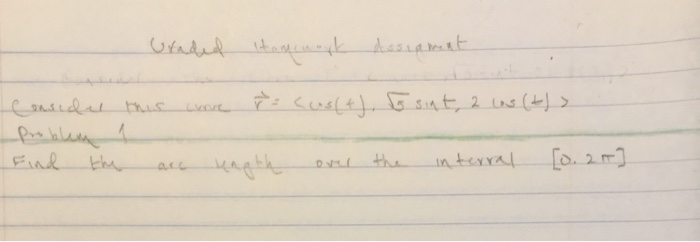 Graded Homework Assignment
Consider this curve r⃗ = <cos(t), √5 sint, 2 cos(t)>
Problem 1
Find the arc length over the interval [0, 2π]